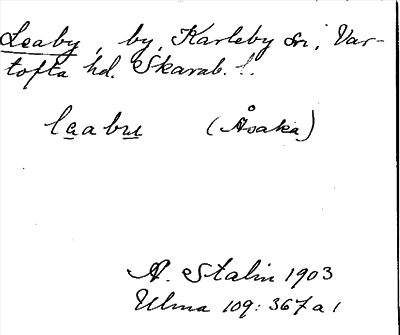 Leaby, by, Karleby sn, Var-
tofta hd. Skarab. l.
laabu (Åsaka)
A. Stalin 1903
Ulma 109: 367 a 1